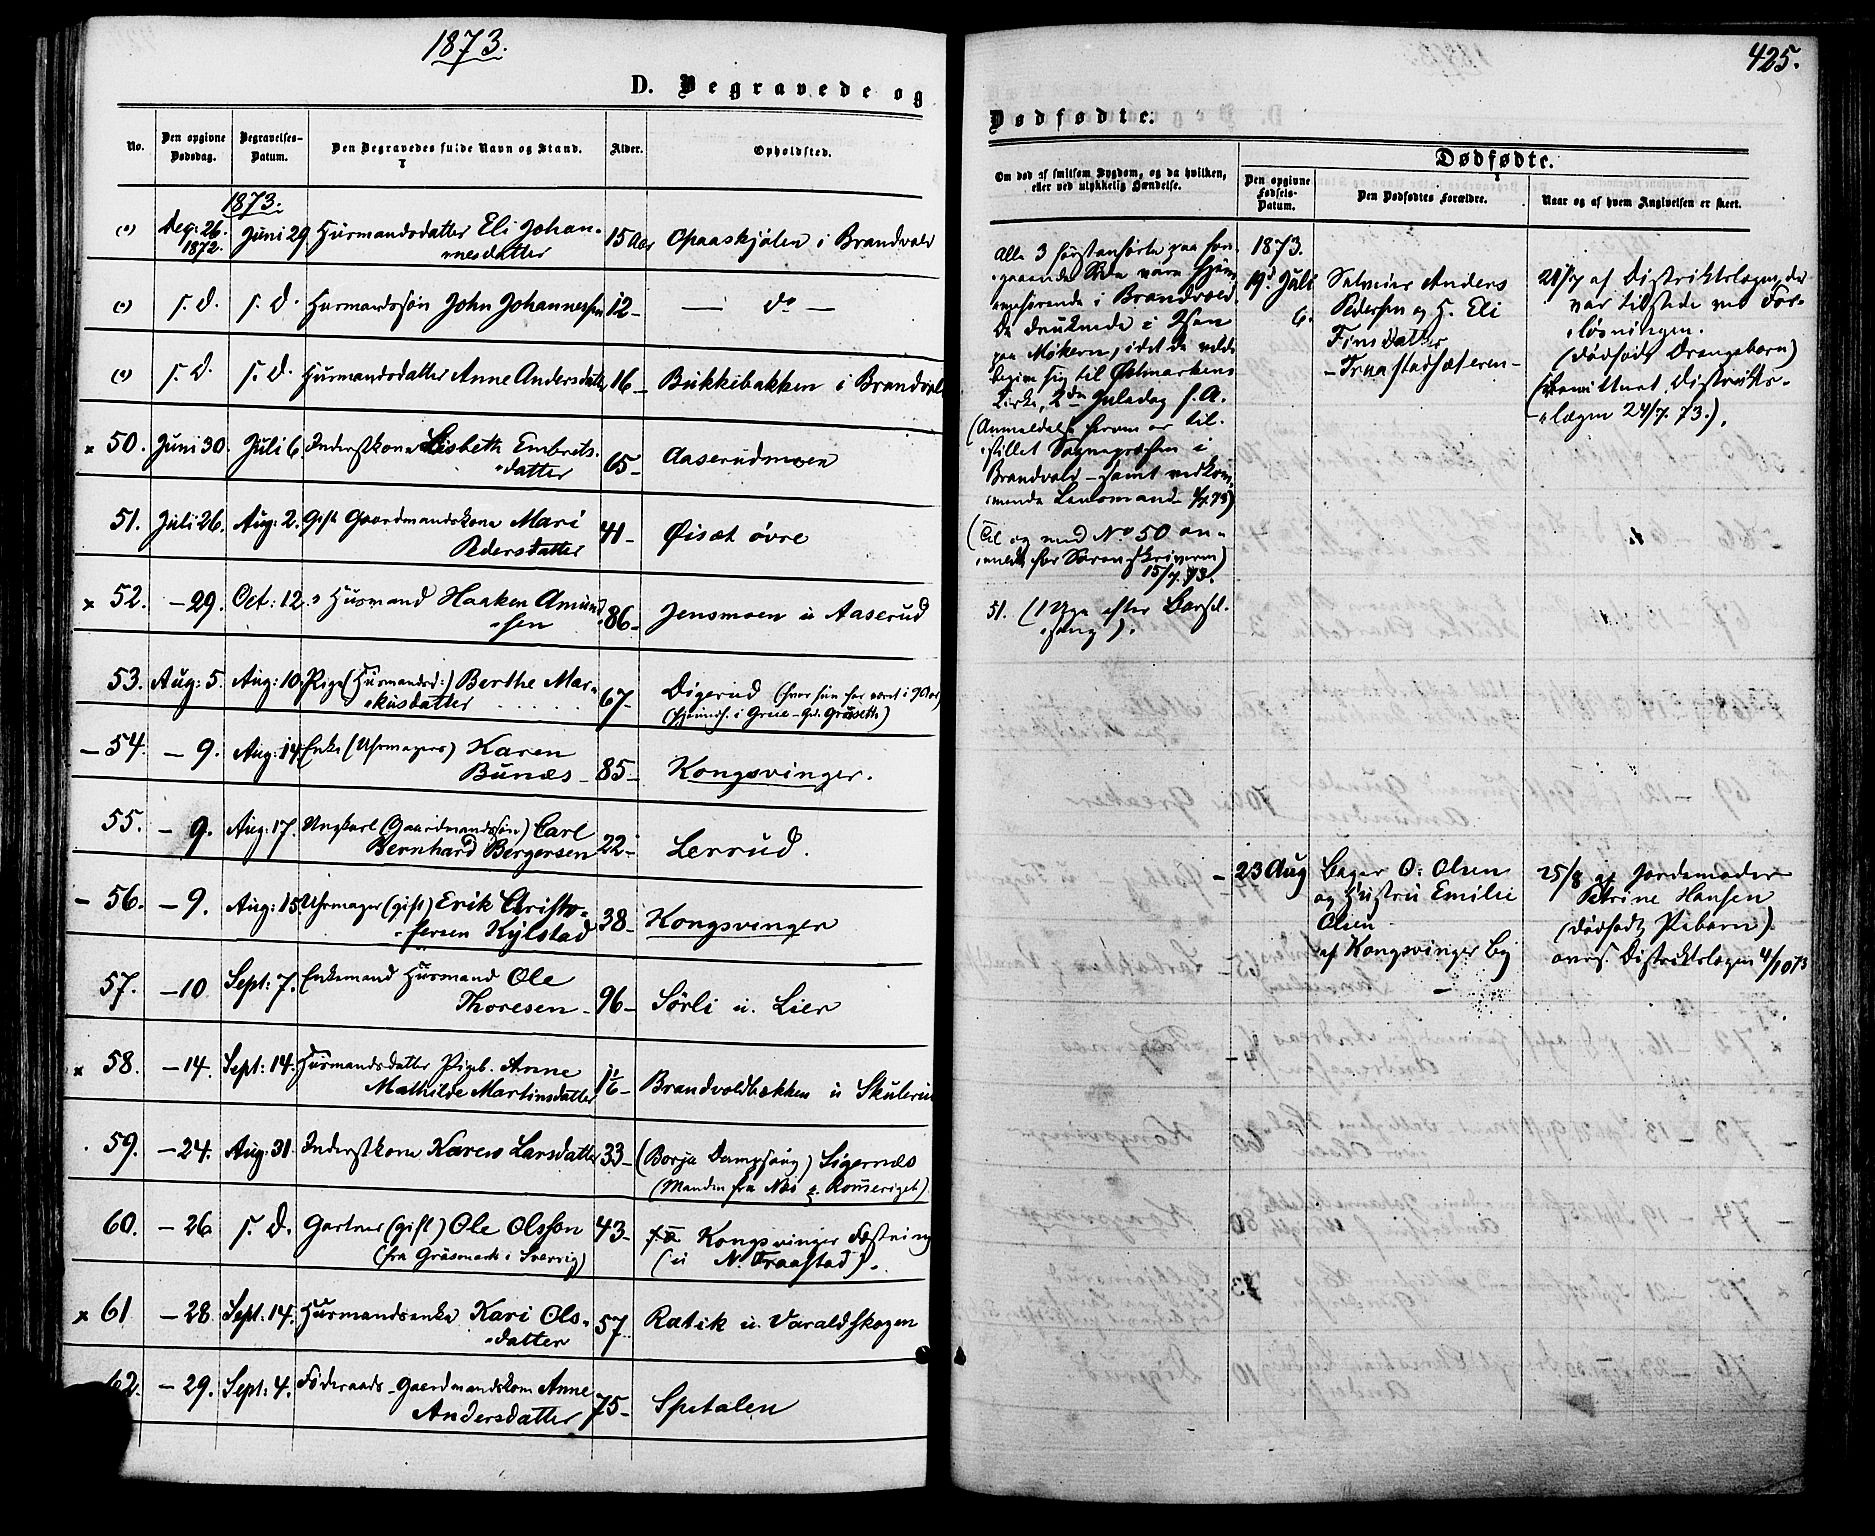 1873.
D. Begravede og
No.
Den opgivne Dødsdag.
Begravelses-Datum.
Den Begravedes fulde Navn og Stand.
Alder.
Opholdsted.
1873.
(") Dec: 26. 1872. Juni 29 Husmandsdatter Eli Johan-
nesdatter 15 Aar Opaaskjølen i Brandvold
(") s. D. s. D. Husmandssøn John Johannessen 12 - — do —
(") s. D. s. D. Husmandsdatter Anne Andersdatter 16 - Bukkibakken i Brandvold
x 50. Juni 30. Juli 6. Inderstkone Lisbeth Embrets-
datter 65 - Aaserudmoen
51. Juli 26. Aug: 2. Gift Gaardmandskone Mari
Pedersdatter 41 - Øiset øvre
x 52. - 29. Oct: 12. Husmand Haaken Amund-
sen 86 - Jensmoen u Aaserud
53. Aug: 5. Aug: 10. Pige (Husmandsd:) Berthe Mar-
kusdatter 67 - Digerud (hvor hun har været i 7 Aar)
(hjemmeh. i Grue - Gd. Grüsett)
- 54. - 9. Aug: 14. Enke (Uhrmagers) Karen
Bünæs - 85 - Kongsvinger.
55. - 9. Aug: 17. Ungkarl (Gaardmandssøn) Carl
Bernhard Bergersen 22 - Lerrud.
- 56. - 9. Aug: 15. Uhrmager (gift) Erik Christo-
fersen Kylstad 38 - Kongsvinger
57. - 10 Sept: 7. Enkemand Husmand Ole
Thoresen - 96 - Sørli u. Lier
x 58. - 14. Sept: 14. Husmandsdatter Pigeb. Anne
Mathilde Martinsdatter 1 1/6 - Brandvoldbækken u Skulerud
59. - 24. Aug: 31. Inderstkone Karen Larsdatter 33 - (Borja Dampsaug) Sigernæs
(Manden fra Næs p. Romeriget)
60. - 26 s. D. Gartner (gift) Ole Olsson 43 - Kongsvinger Fæstning
(fra Gräsmark i Sverrig) (u N. Traastad).
x 61 - 28. Sept: 14. Husmandsenke Kari Ols-
datter 57 Ratik u. Varaldskogen
62. - 29. Sept: 4. Föderaads-Gaardmandskone Anne
Andersdatter 75 - Spetalen
425.
Dødfødte.
Om død af smitsom Sygdom, og da hvilken,
eller ved ulykkelig Hændelse.
Dødfødte.
Den opgivne Fødsels-Datum.
Den Dødfødtes Forældre.
Naar og af hvem Angivelsen er skeet.
Alle 3 førstanførte paa for-
egaaende Side vare hjem-
mehørende i Brandvold.
De druknede i Isen
paa Møkern, idet de vilde
begive sig til Østmarkens
Kirke, 2den Juledag f. A.
(Anmeldelse herom er til-
stillet Sognepræsten i
Brandvold - samt vedkom-
mende Lensmand 4/7 73)
(Til og med No 50 an-
meldt for Sorenskriveren)
15/7. 73.
51. (1 Uge efter Barsel-
sang).
1873.
19d Juli
6.
Salveier Anders
Pedersen og H. Eli
Finsdatter
- Traastadsæteren -
21/7 af Distriktslægen, der
var tilstede ved For-
løsningen.
(dødfødt Drengebarn)
Distrikts-
lægen 24/7. 73.).
- 23 Aug
Bager O: Olsen
og Hustru Emilie
Olsen
af Kongsvinger By
-
25/8 af Jordemoder
Petrine Hansen
(dødfødt Pigebarn)
Distriktslægen 4/10 73